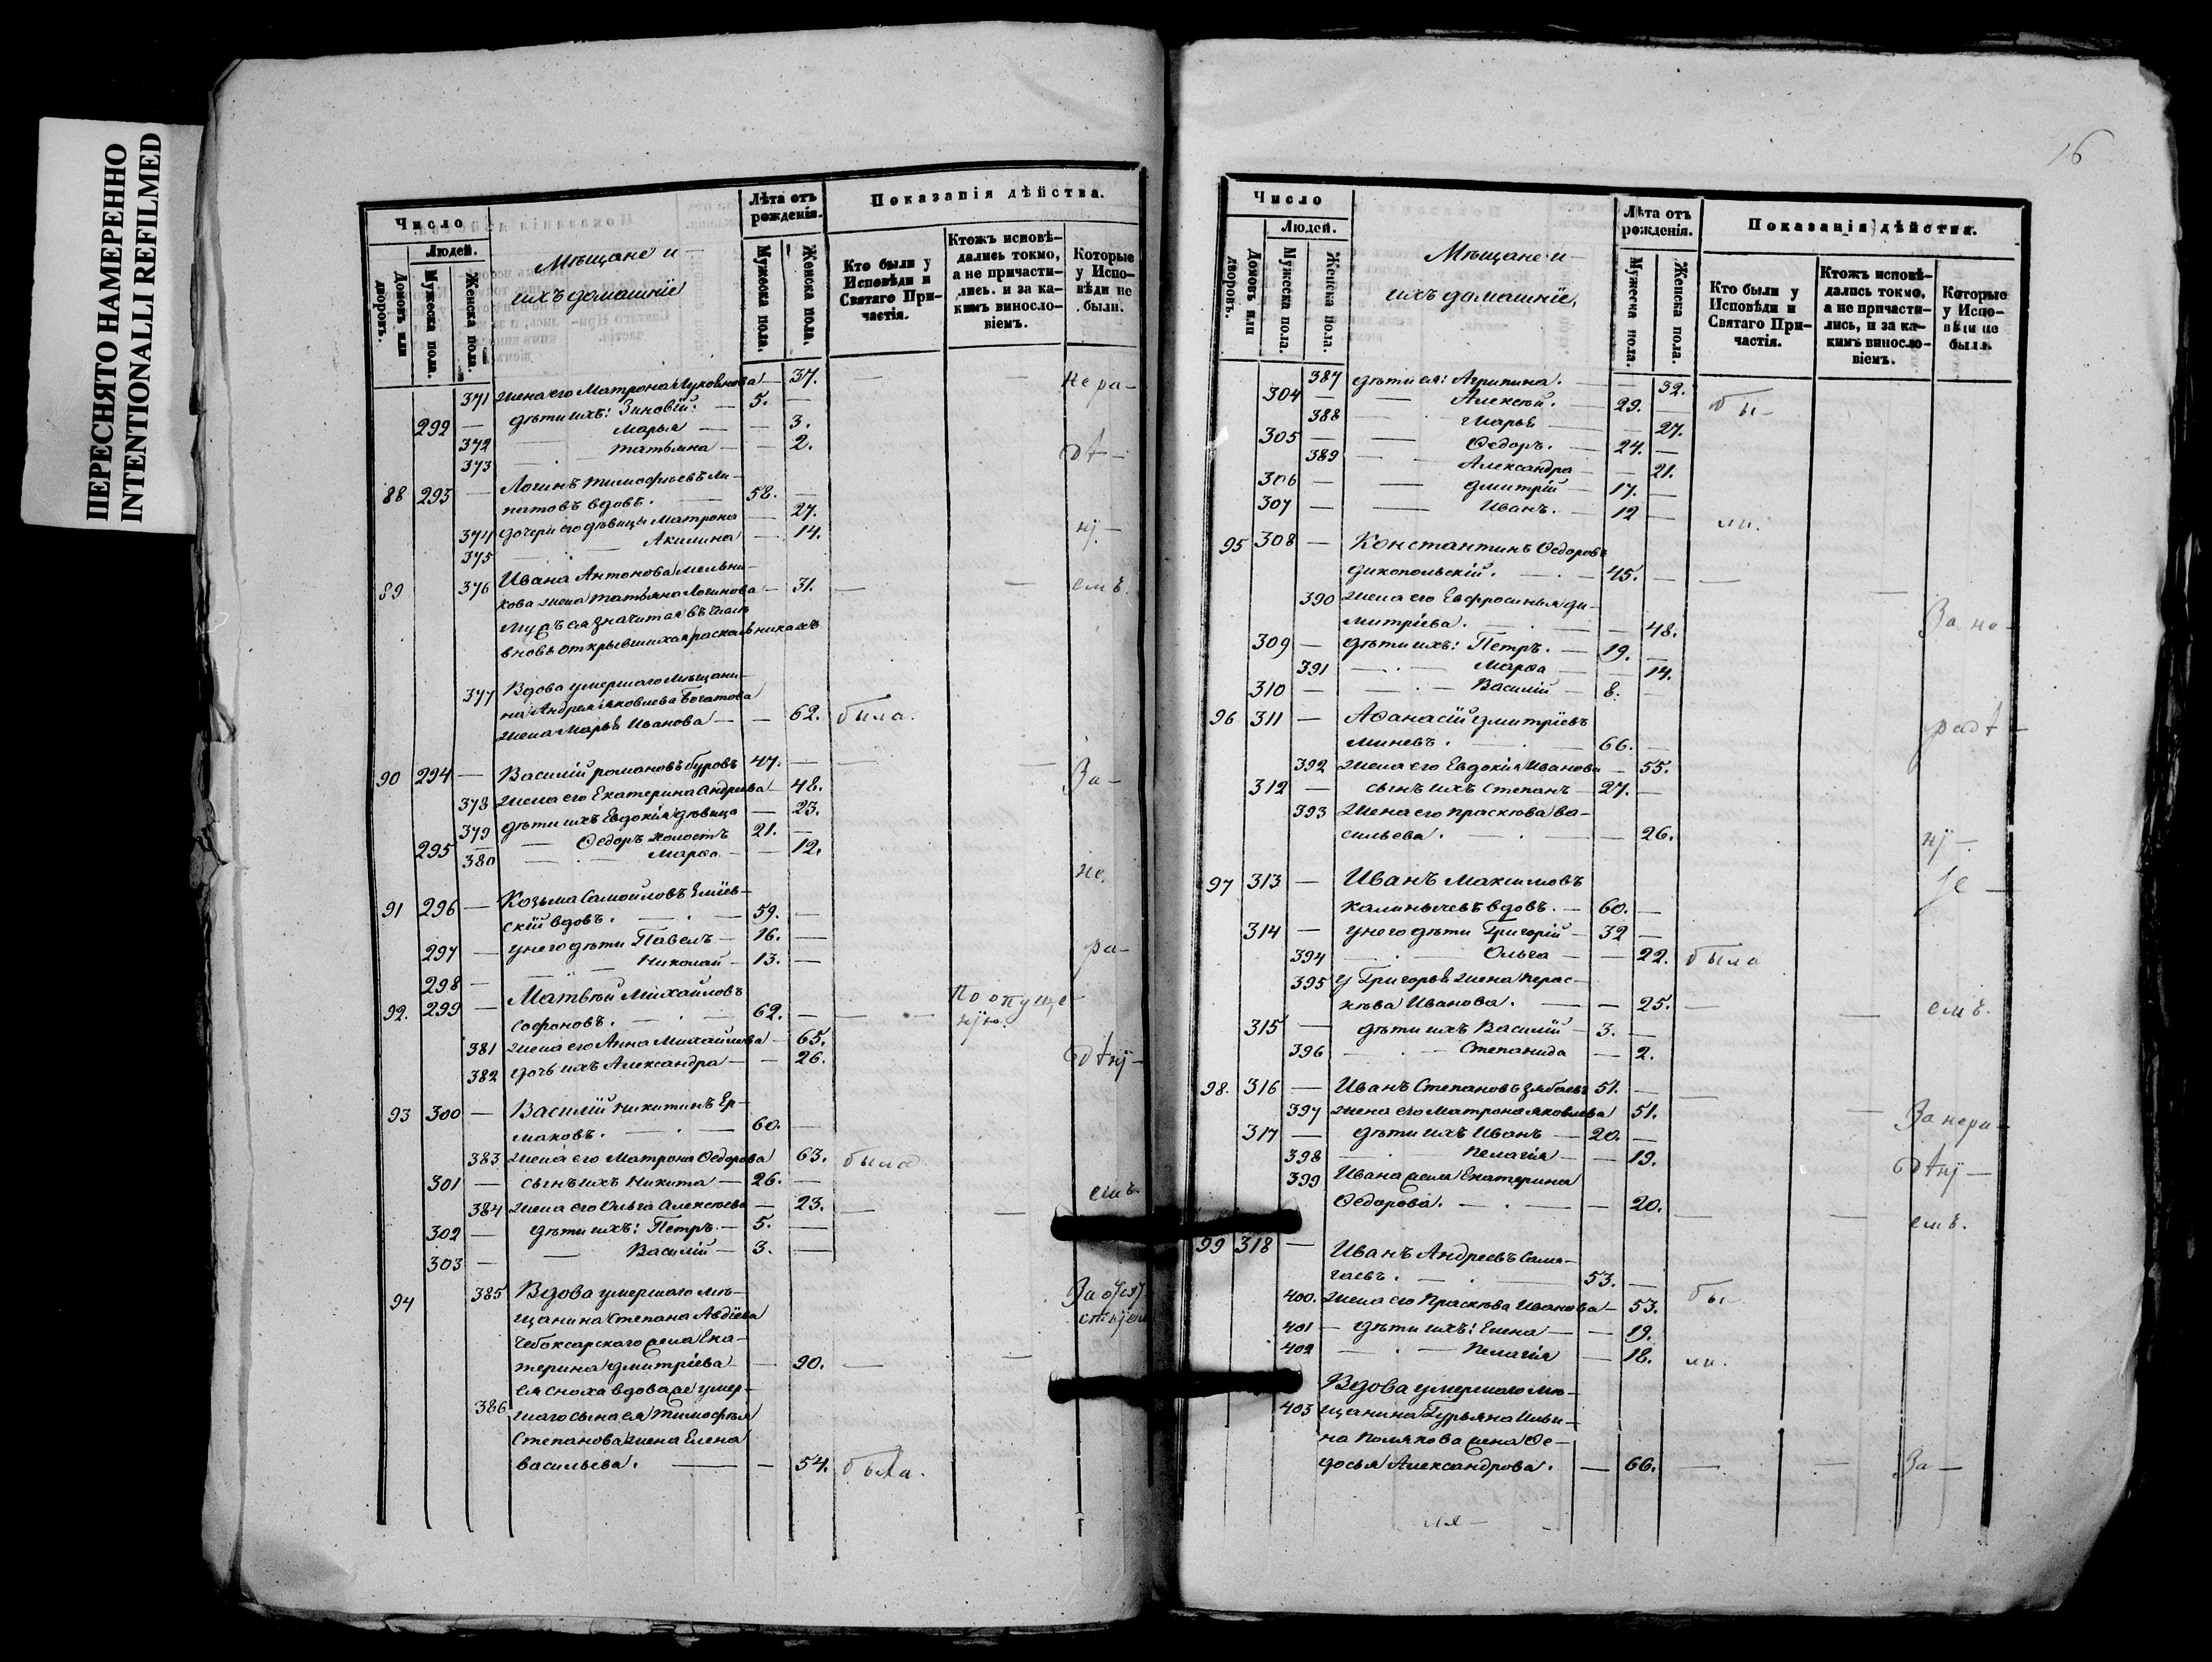 ПЕРЕСНЯТО НАМЕРЕННО
INTENTIONALLI REFILMED
Число
Людей.
Домовъ или дворовъ.
Мужеска пола.
Женска пола.
Мѣщане и
ихъ домашніе
Лѣта отъ рожденія.
Мужеска пола.
Женска пола.
Показанія дѣйства.
Кто были у Исповѣди и Святаго Причастія.
Ктожъ исповѣдались токмо, а не причастились. и за какимъ винословіемъ.
Которые у Исповѣди не были.
371 жена его Матрона — 37. — — нера-
292 — дѣти ихъ: Зиновій. — 5. —
372 Марья — — 3.
373 Татьяна — — 2. дѣ-
88 293 — Логинъ Тимофѣевъ Ли-
патовъ вдовъ. — 58. —
374 дочери его дѣвицы Матрона — 27. нї-
375 Акилина — 14.
89 376 Ивана Антонова Мельни-
кова жена Татьяна Логинова — 31. — — емъ.
мужъ ея значится въ числѣ
вновь открывшихся раскольникахъ
377 Вдова умершаго мѣщани-
на Андрея Яковлева Богатова
жена Марья Иванова — — 62. была.
90 294 — Василій Романовъ Буровъ 47. — — — За-
378 жена его Екатерина Андреева — 48.
379 дѣти ихъ Евдокія дѣвица — 23.
295 — Ѳедоръ холостъ 21. —
380 Марѳа — — 12. не.
91 296 — Козьма Самойловъ Еліев-
скій вдовъ. — 59. —
297 — у него дѣти Павелъ — 16. — ра-
298 — Николай — 13. —
92. 299 — Матвѣй Михайловъ
Софоновъ. — 62. — — — По опуще-
нїю.
381 жена его Анна Михайлова — 65.
382 дочь ихъ Александра — — 26. дѣнї-
93 300 — Василій Никитинъ Ер-
маковъ. — 60. —
383 жена его Матрона Ѳедорова 63. была.
301 — сынъ ихъ Никита — 26. —
384 жена его Ольга Алексѣева — 23. — — емъ
302 — дѣти ихъ: Петръ. — 5. —
303 — Василій — 3. —
94 385 Вдова умершаго мѣ-
щанина Степана Авдіева
Чебоксарскаго жена Ека-
терина Дмитріева — 90. — —
386 ея сноха вдова же умер-
шаго сына ея Тимофѣя
Степанова жена Елена
Васильева. — — 54. была.
16
Число
Людей.
Домовъ или дворовъ.
Мужеска пола.
Женска пола.
Мѣщане и
ихъ домашніе,
Лѣта отъ рожденія.
Мужеска пола.
Женска пола.
Показанія дѣйства.
Кто были у Исповѣди и Святаго Причастія.
Ктожъ исповѣдались токмо, а не причастились, и за какимъ винословіемъ.
Которые у Исповѣди не были.
387 дѣти ея: Агрипина. — 32.
304 — Алексѣй. — 29. — бы-
388 Марья — — 27.
305 — Ѳедоръ. — 24. —
389 Александра — — 21.
306 — Дмитрій — 17. —
307 — Иванъ. — 12 — ли.
95 308 — Константинъ Ѳедоровъ
Дикопольскій. — 45. — —
390 жена его Евфросинья Ди-
митріева. — — 48. За не-
309 — дѣти ихъ: Петръ. — 19. —
391 Марѳа — — 14.
310 — Василій — 8. —
96 311 — Аѳанасій Дмитріевъ
Миневъ. — 66. — радѣ-
392 жена его Евдокія Иванова — 55.
312 — сынъ ихъ Степанъ — 27. —
393 жена его Прасковья Ва-
сильева. — — 26. нї-
97 313 — Иванъ Максимовъ
Калинычевъ вдовъ. — 60. —
314 — у него дѣти Григорій — 32 —
394 Ольга — — 22. была
395 у Григорья жена Парас-
кѣва Иванова. — — 25. — — емъ.
315 — дѣти ихъ Василій — 3. —
396 Степанида — 2.
98. 316 — Иванъ Степановъ 51. — —
397 жена его Матрона Яковлева 51. — За нера-
317 — дѣти ихъ Иванъ — 20. —
398 Пелагія — — 19. дѣнї-
399 Ивана жена Екатерина
Ѳедорова. — — 20. — — емъ.
99 318 — Иванъ Андреевъ Сама-
гаевъ. — 53. —
400. жена его Прасковья Иванова — 53. бы-
401 — дѣти ихъ: Елена — — 19.
402 Пелагія — 18. ли.
Вдова умершаго мѣ-
403 щанина Гурьяна Ильи-
на Полякова жена Ѳе-
досья Александрова. — 66. — — За —